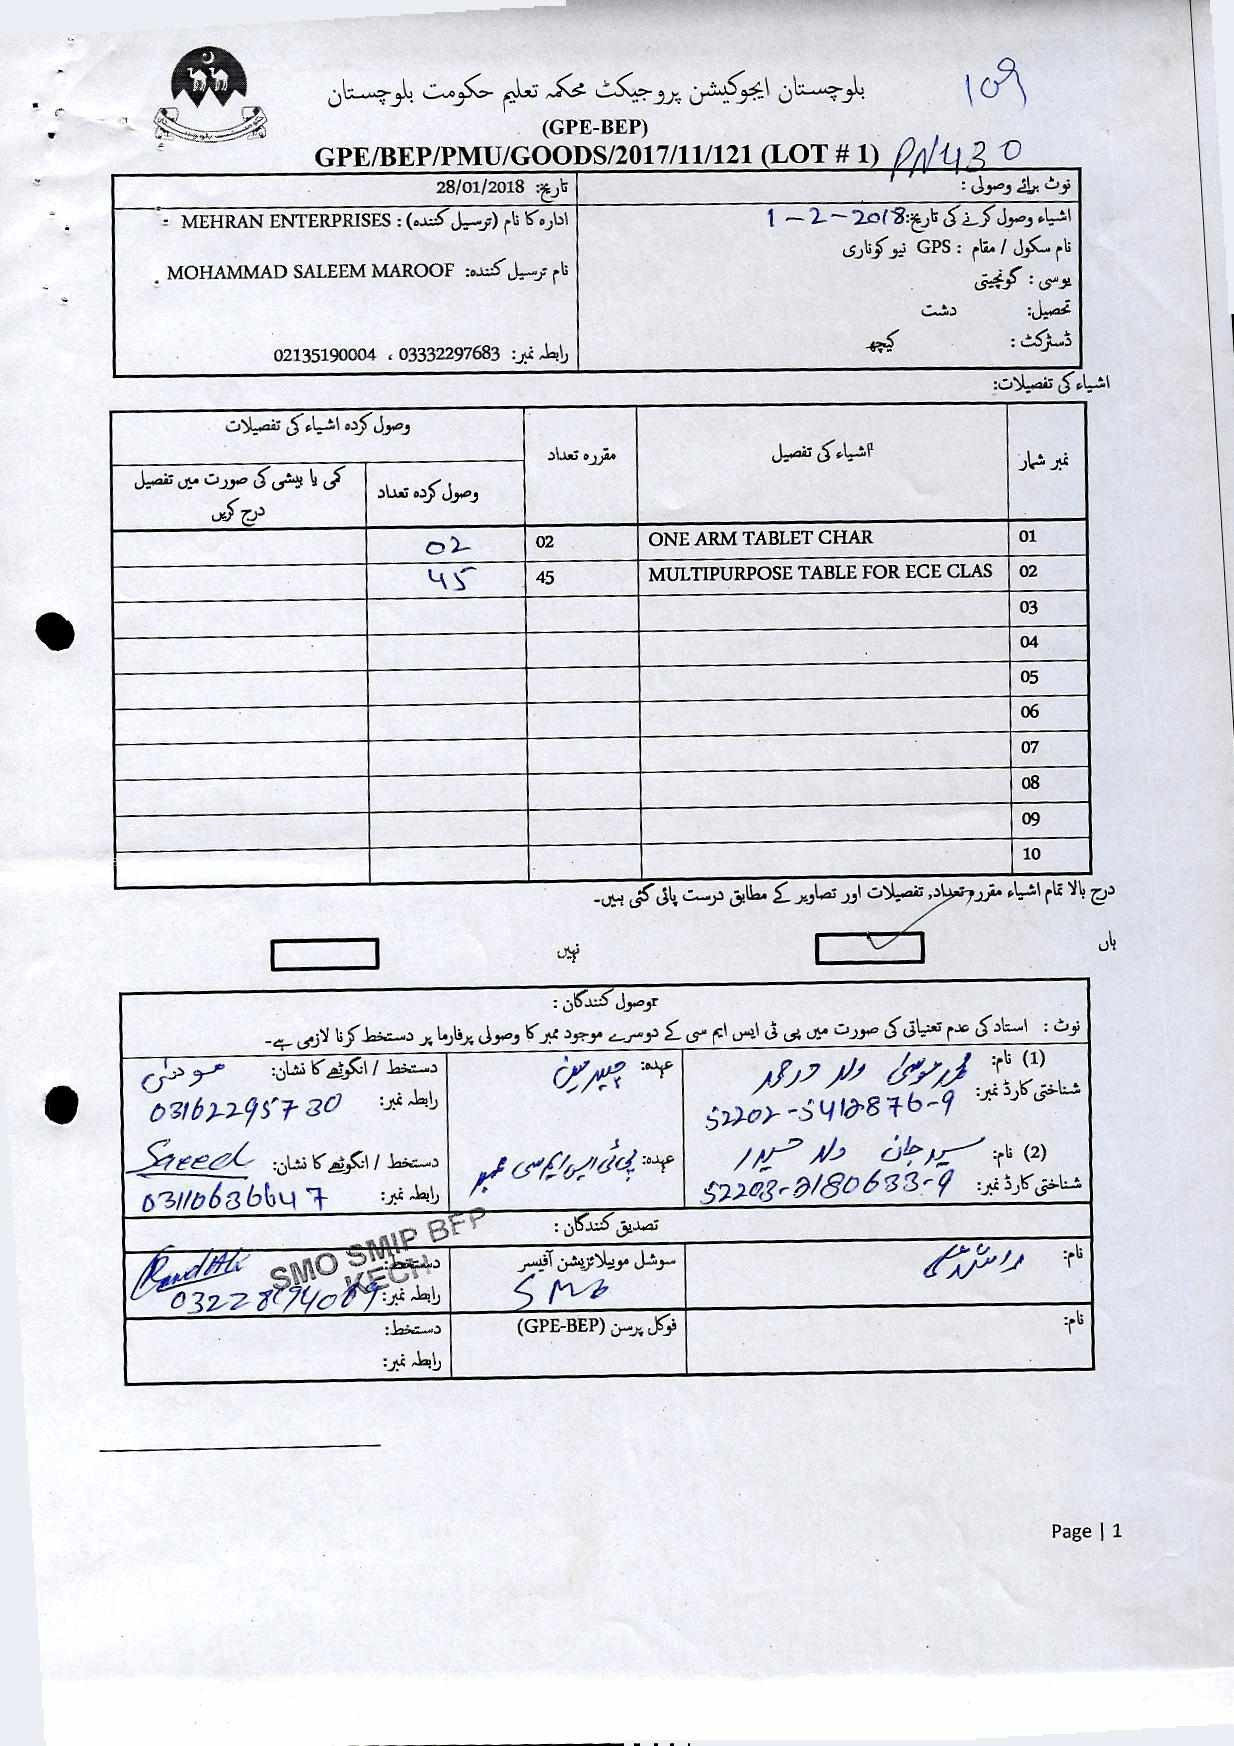 109
بلوچستان ایجوکیشن پروجیکٹ محکمہ تعلیم حکومت بلوچستان
(GPE-BEP)
GPE/BEP/PMU/GOODS/2017/11/121 (LOT # 1) PN430
نوٹ برائے وصولی :
تاریخ: 28/01/2018
اشیاء وصول کرنے کی تاریخ: 1-2-2018
ادارہ کا نام (ترسیل کنندہ) : MEHRAN ENTERPRISES
نام سکول / مقام : GPS نیو کوناری
نام ترسیل کنندہ: MOHAMMAD SALEEM MAROOF
یوسی : گونچیتی
تحصیل: دشت
ڈسٹرکٹ : کیچھ
رابطہ نمبر: 03332297683 ، 02135190004
اشیاء کی تفصیلات:
نمبر شمار اشیاء کی تفصیل مقررہ تعداد وصول کردہ اشیاء کی تفصیلات
وصول کردہ تعداد کمی یا بیشی کی صورت میں تفصیل درج کریں
01 ONE ARM TABLET CHAR 02 02
02 MULTIPURPOSE TABLE FOR ECE CLAS 45 45
03
04
05
06
07
08
09
10
درج بالا تمام اشیاء مقررہ تعداد, تفصیلات اور تصاویر کے مطابق درست پائی گئی ہیں۔
ہاں نہیں
وصول کنندگان :
نوٹ : استاد کی عدم تعیناتی کی صورت میں پی ٹی ایس ایم سی کے دوسرے موجود ممبر کا وصولی پرفارما پر دستخط کرنا لازمی ہے۔
(1) نام: محمد موسیٰ ولد عہدہ: چیئرمین دستخط / انگوٹھے کا نشان: موسیٰ
شناختی کارڈ نمبر: 52202-5412876-9 رابطہ نمبر: 03162295730
(2) نام: جان ولد حیدر عہدہ: پی ٹی ایس ایم سی ممبر دستخط / انگوٹھے کا نشان: Saeed
شناختی کارڈ نمبر: 52203-2180633-9 رابطہ نمبر: 03110636647
تصدیق کنندگان :
نام: سوشل موبیلائزیشن آفیسر SMO دستخط:
رابطہ نمبر:
SMO SMIP BEP
KECH
نام: فوکل پرسن (GPE-BEP) دستخط:
رابطہ نمبر:
Page | 1